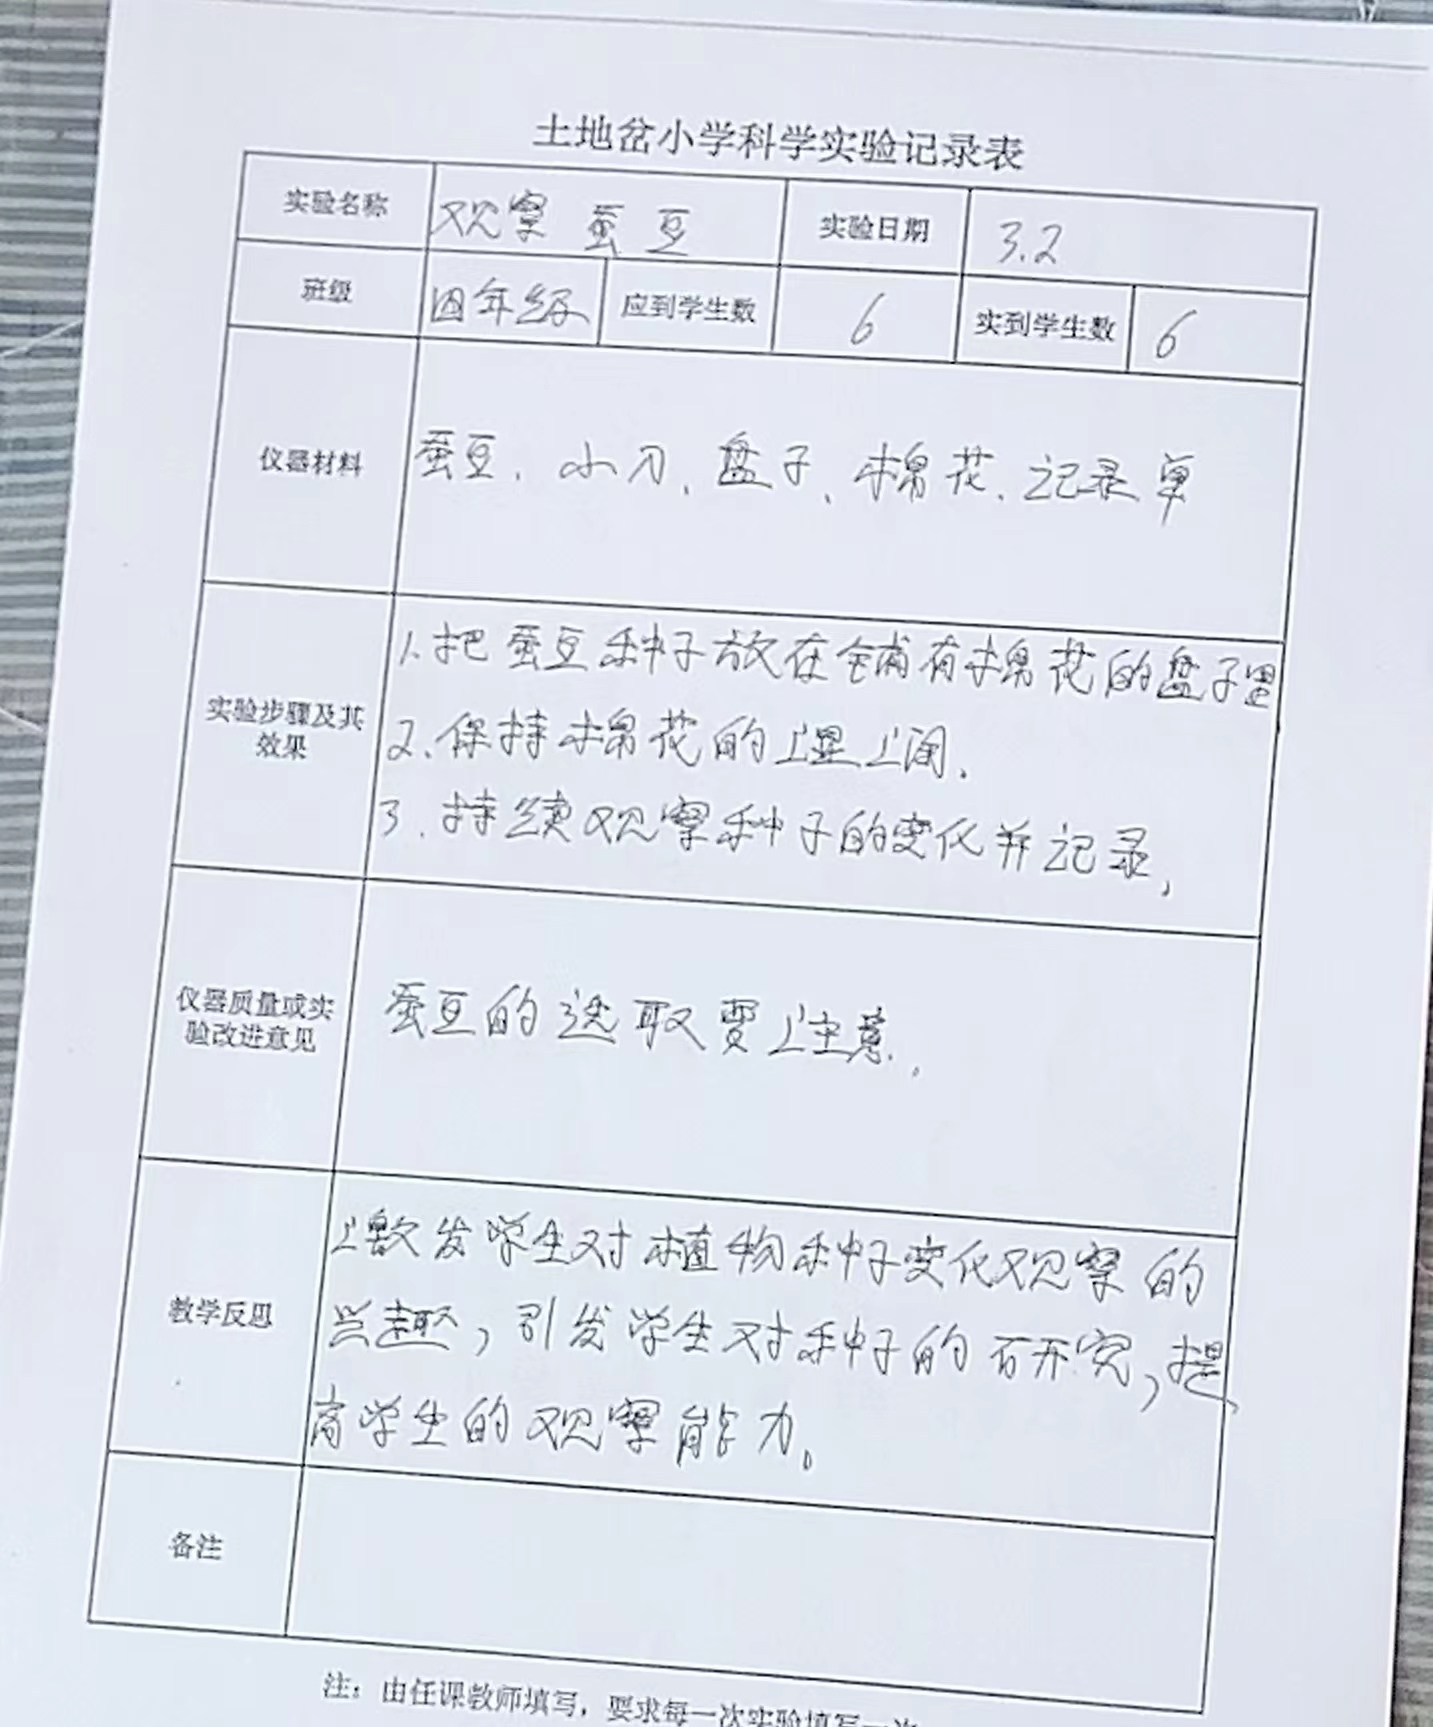 土地岔小学科学实验记录表
实验名称 观察蚕豆 实验日期 3.2
班级 四年级 应到学生数 6 实到学生数 6
仪器材料 蚕豆、小刀、盘子、棉花、记录单
1.把蚕豆种子放在铺有棉花的盘子里
实验步骤及其
效果
2.保持棉花的湿润.
3.持续观察种子的变化并记录,
仪器质量或实
验改进意见
蚕豆的选取要注意.
激发学生对植物种子变化观察的
教学反思
兴趣,引发学生对种子的研究,提
高学生的观察能力。
备注
注：由任课教师填写，要求每一次实验填写一次